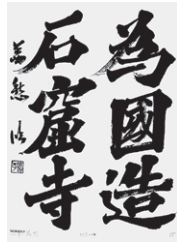 為國造
石窟寺